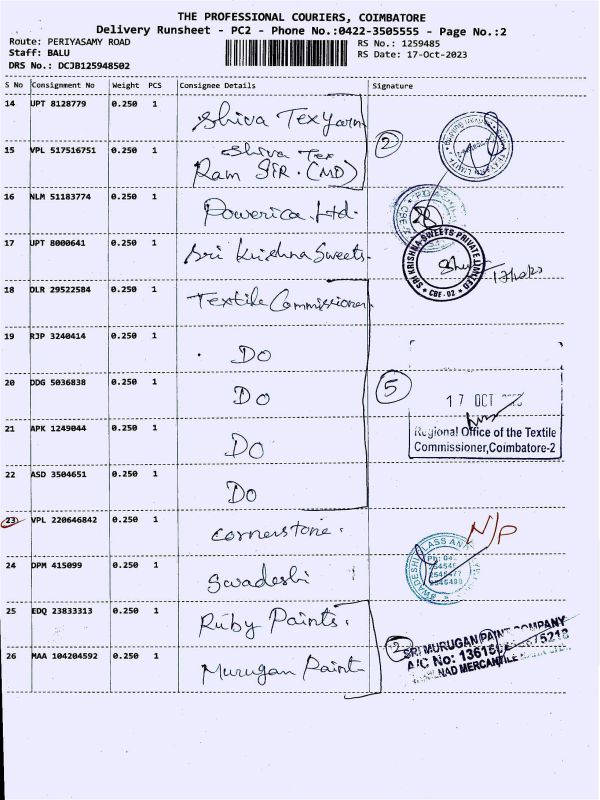 THE PROFESSIONAL COURIERS, COIMBATORE
Delivery Runsheet - PC2 - Phone No.:0422-3505555 - Page No.:2
Route: PERIYASAMY ROAD
RS No.: 1259485
Staff: BALU
RS Date: 17-Oct-2023
DRS No.: DCJB125948502
S No Consignment No Weight PCS Consignee Details Signature
14 UPT 8128779 0.250 1 Shiva Tex Yarn
15 VPL 517516751 0.250 1 Shiva Tex
Ram SIR. (MD)
2
16 NLM 51183774 0.250 1 Powerica Ltd.
17 UPT 8000641 0.250 1 Sri Krishna Sweets.
SRI KRISHNA SWEETS PRIVATE LIMITED
* CBE - 02 *
18 DLR 29522584 0.250 1 Textile Commissioner
19 RJP 3240414 0.250 1 Do
20 DDG 5036838 0.250 1 Do
5
17 OCT
21 APK 1249044 0.250 1 Do
Regional Office of the Textile
Commissioner, Coimbatore-2
22 ASD 3504651 0.250 1 Do
23 VPL 220646842 0.250 1 Cornerstone.
N/P
24 DPM 415099 0.250 1 Swadeshi
25 EDQ 23833313 0.250 1 Ruby Paints.
26 MAA 104204592 0.250 1 Murugan Paint
2
SRI MURUGAN PAINT COMPANY
A/C No: 13615
75218
NAD MERCANTILE